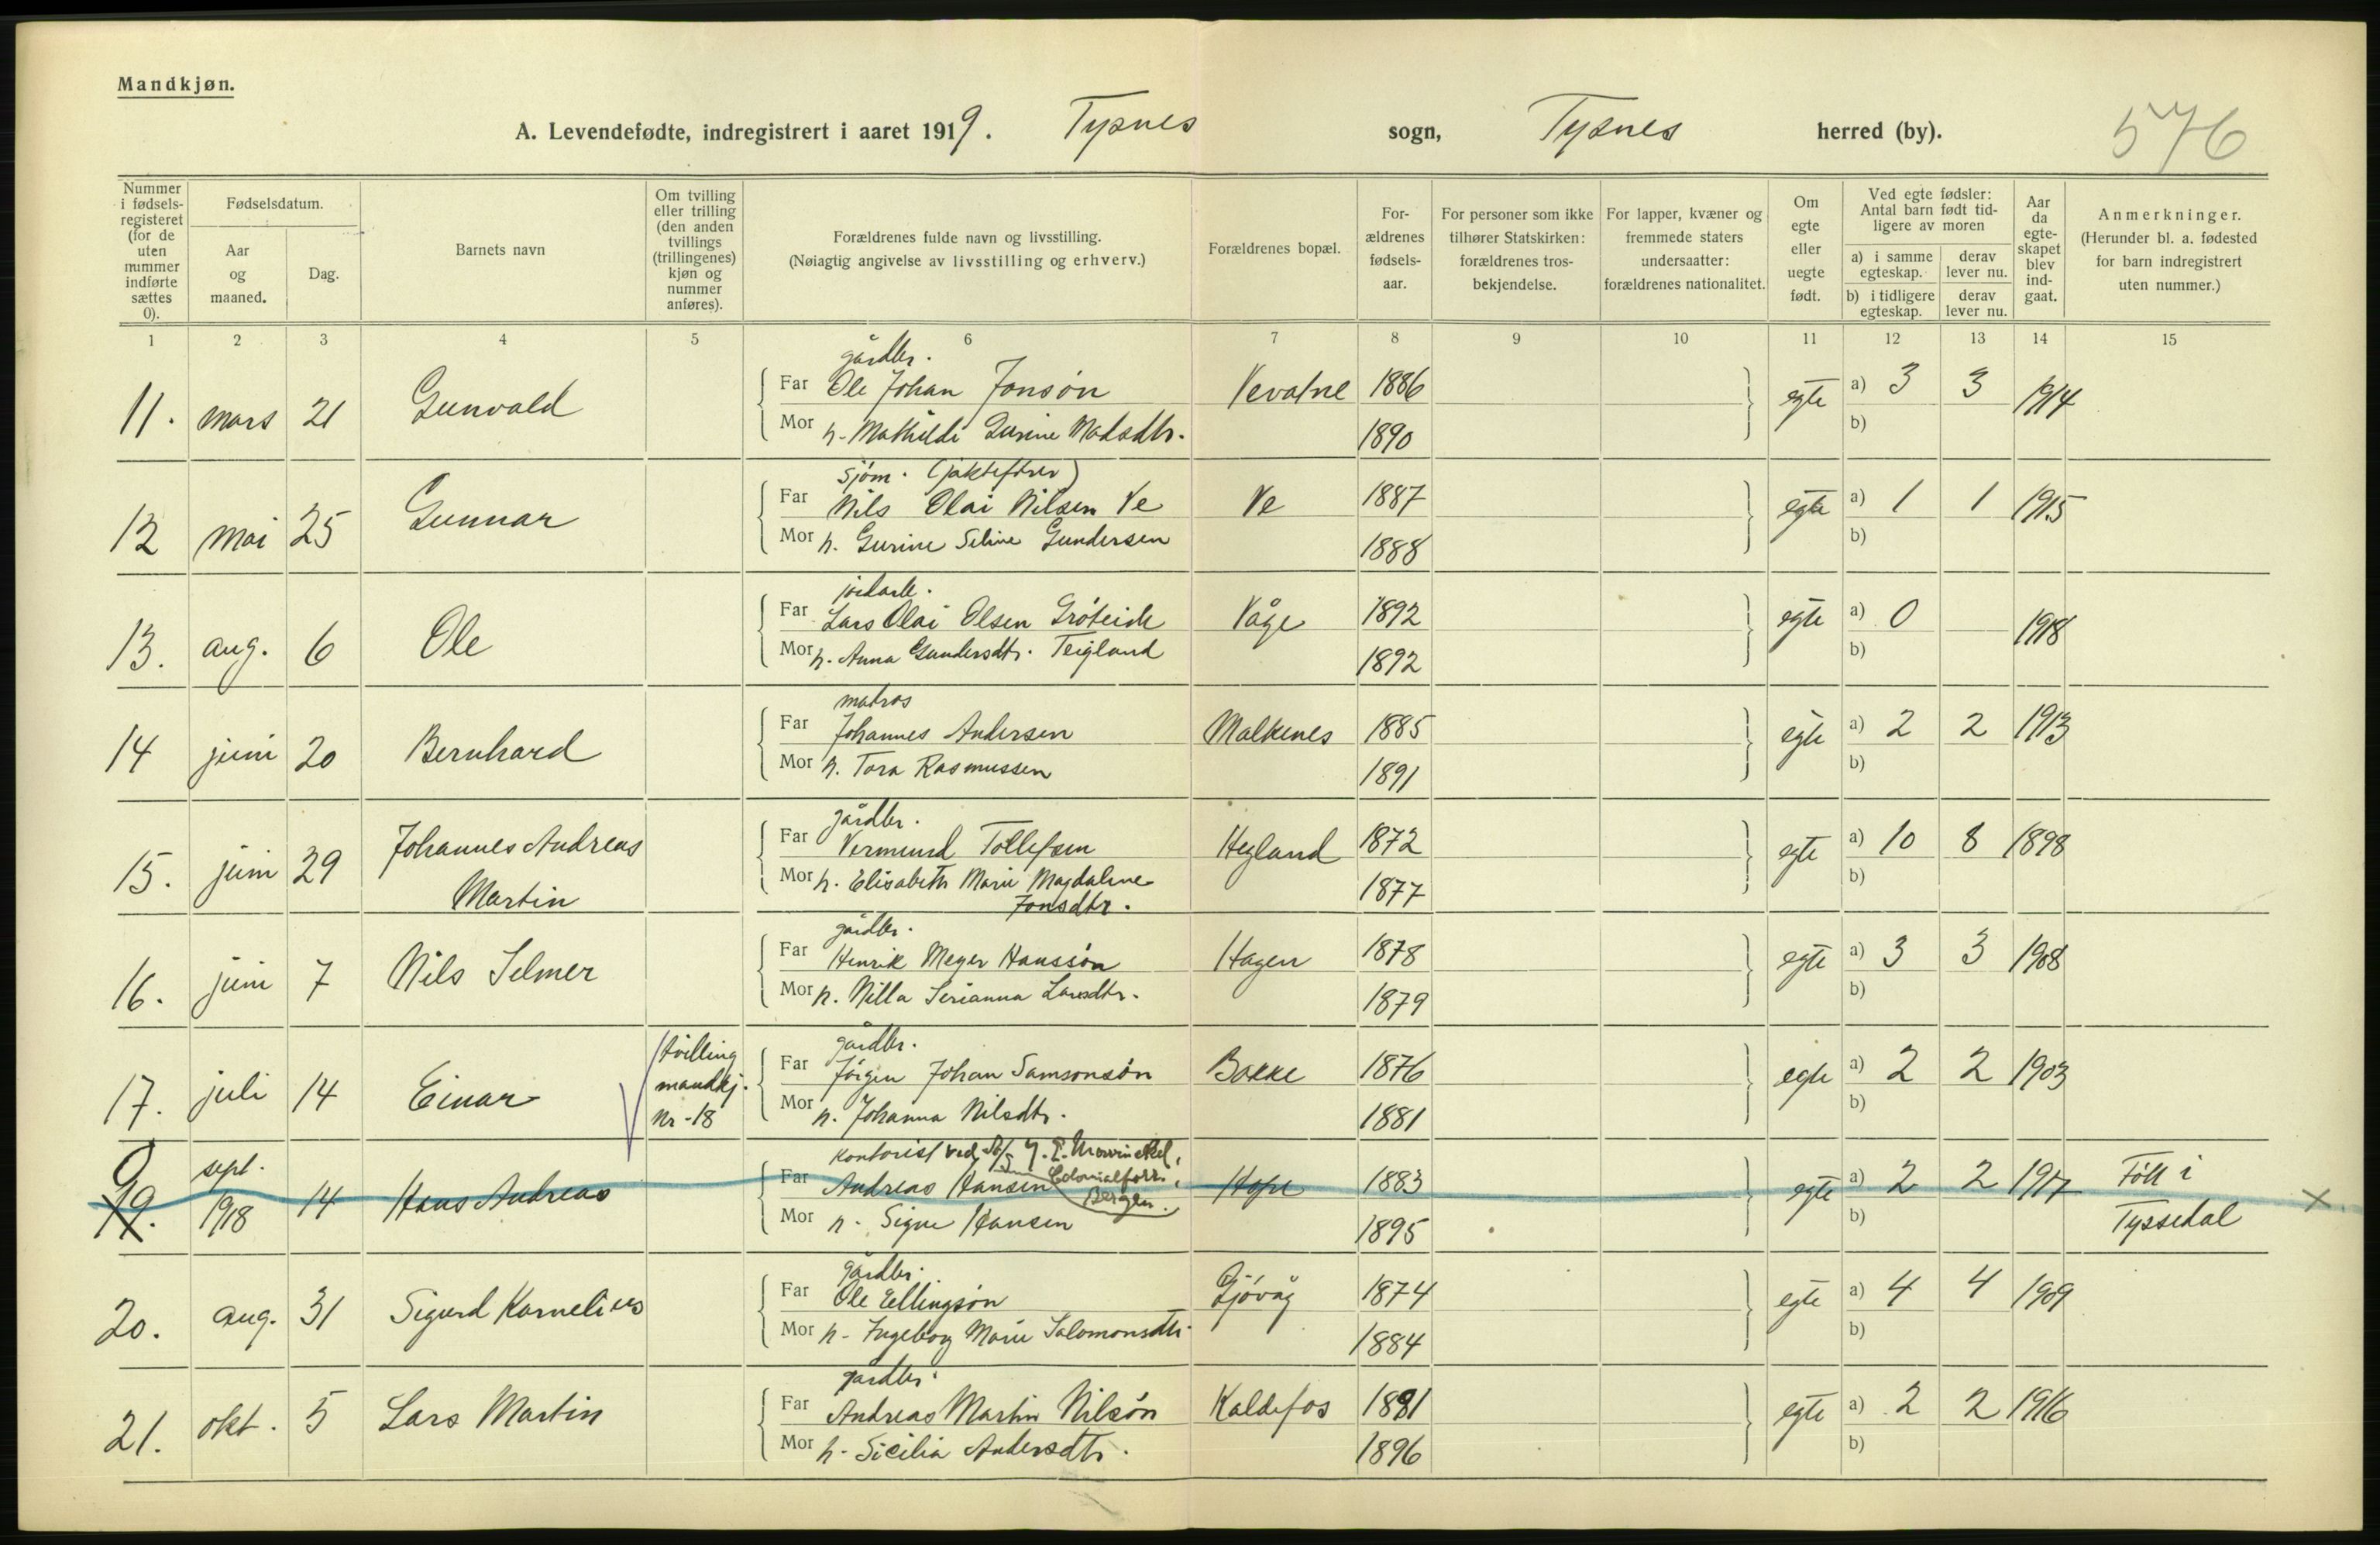 Mandkjøn.
A. Levendefødte, indregistrert i aaret 1919. Tysnes sogn, Tysnes herred (by). 576
Nummer i fødsels-registeret (for de uten nummer indførte sættes 0).
Fødselsdatum.
Aar og maaned.
Dag.
Barnets navn
Om tvilling eller trilling (den anden tvillings (trillingenes) kjøn og nummer anføres).
Forældrenes fulde navn og livsstilling.
(Nøiagtig angivelse av livsstilling og erhverv.)
Forældrenes bopæl.
For-ældrenes fødsels-aar.
For personer som ikke tilhører Statskirken: forældrenes tros-bekjendelse.
For lapper, kvæner og fremmede staters undersaatter: forældrenes nationalitet.
Om egte eller uegte født.
Ved egte fødsler: Antal barn født tid-ligere av moren
a) i samme egteskap. derav lever nu.
b) i tidligere egteskap. derav lever nu.
Aar da egte-skapet blev ind-gaat.
Anmerkninger.
(Herunder bl. a. fødested for barn indregistrert uten nummer.)
1 2 3 4 5 6 7 8 9 10 11 12 13 14 15
gårdbr.
11. mars 21 Gunvald Far Ole Johan Jonsøn Vevatne 1886 egte a) 3 3 1914
Mor h. Mathilde Gurine Madsdtr. 1890 b)
sjøm. (jaktefører)
12 mai 25 Gunnar Far Nils Olai Nilsen Ve Ve 1887 egte a) 1 1 1915
Mor h. Gurine Seline Gundersen 1888 b)
jordarb.
13. aug. 6 Ole Far Lars Olai Olsen Våge 1892 egte a) 0 1918
Mor h. Anna Gundersdtr. Teigland 1892 b)
matros
14 juni 20 Bernhard Far Johannes Andersen Malkenes 1885 egte a) 2 2 1913
Mor h. Tora Rasmussen 1891 b)
gårdbr.
15. juni 29 Johannes Andreas Far Vermund Tollefsen Hegland 1872 egte a) 10 8 1898
Martin Mor h. Elisabeth Marie Magdalene 1877 b)
Jonsdtr.
gårdbr.
16. juni 7 Nils Selmer Far Henrik Meyer Hanssøn Hagen 1878 egte a) 3 3 1908
Mor h. Nilla Serianna Larsdtr. 1879 b)
gårdbr.
17. juli 14 Einar tvilling mandkj. Nr-18 Far Jørgen Johan Samsonsøn Bakke 1876 egte a) 2 2 1903
Mor h. Johanna Nilsdtr. 1881 b)
kontorist ved Colonialforr. Bergen.
0 19. sept. 1918 14 Hans Andreas Far Andreas Hansen Hope 1883 egte a) 2 2 1917 Født i Tyssedal X
Mor h. Signe Hansen 1895 b)
gårdbr.
20. aug. 31 Sigurd Kornelius Far Ole Ellingsøn Gjøvåg 1874 egte a) 4 4 1909
Mor h. Ingeborg Marie Salomonsdtr. 1884 b)
gårdbr.
21. okt. 5 Lars Martin Far Andreas Martin Nilsøn Kaldefos 1881 egte a) 2 2 1916
Mor h. Sicilia Andersdtr. 1896 b)